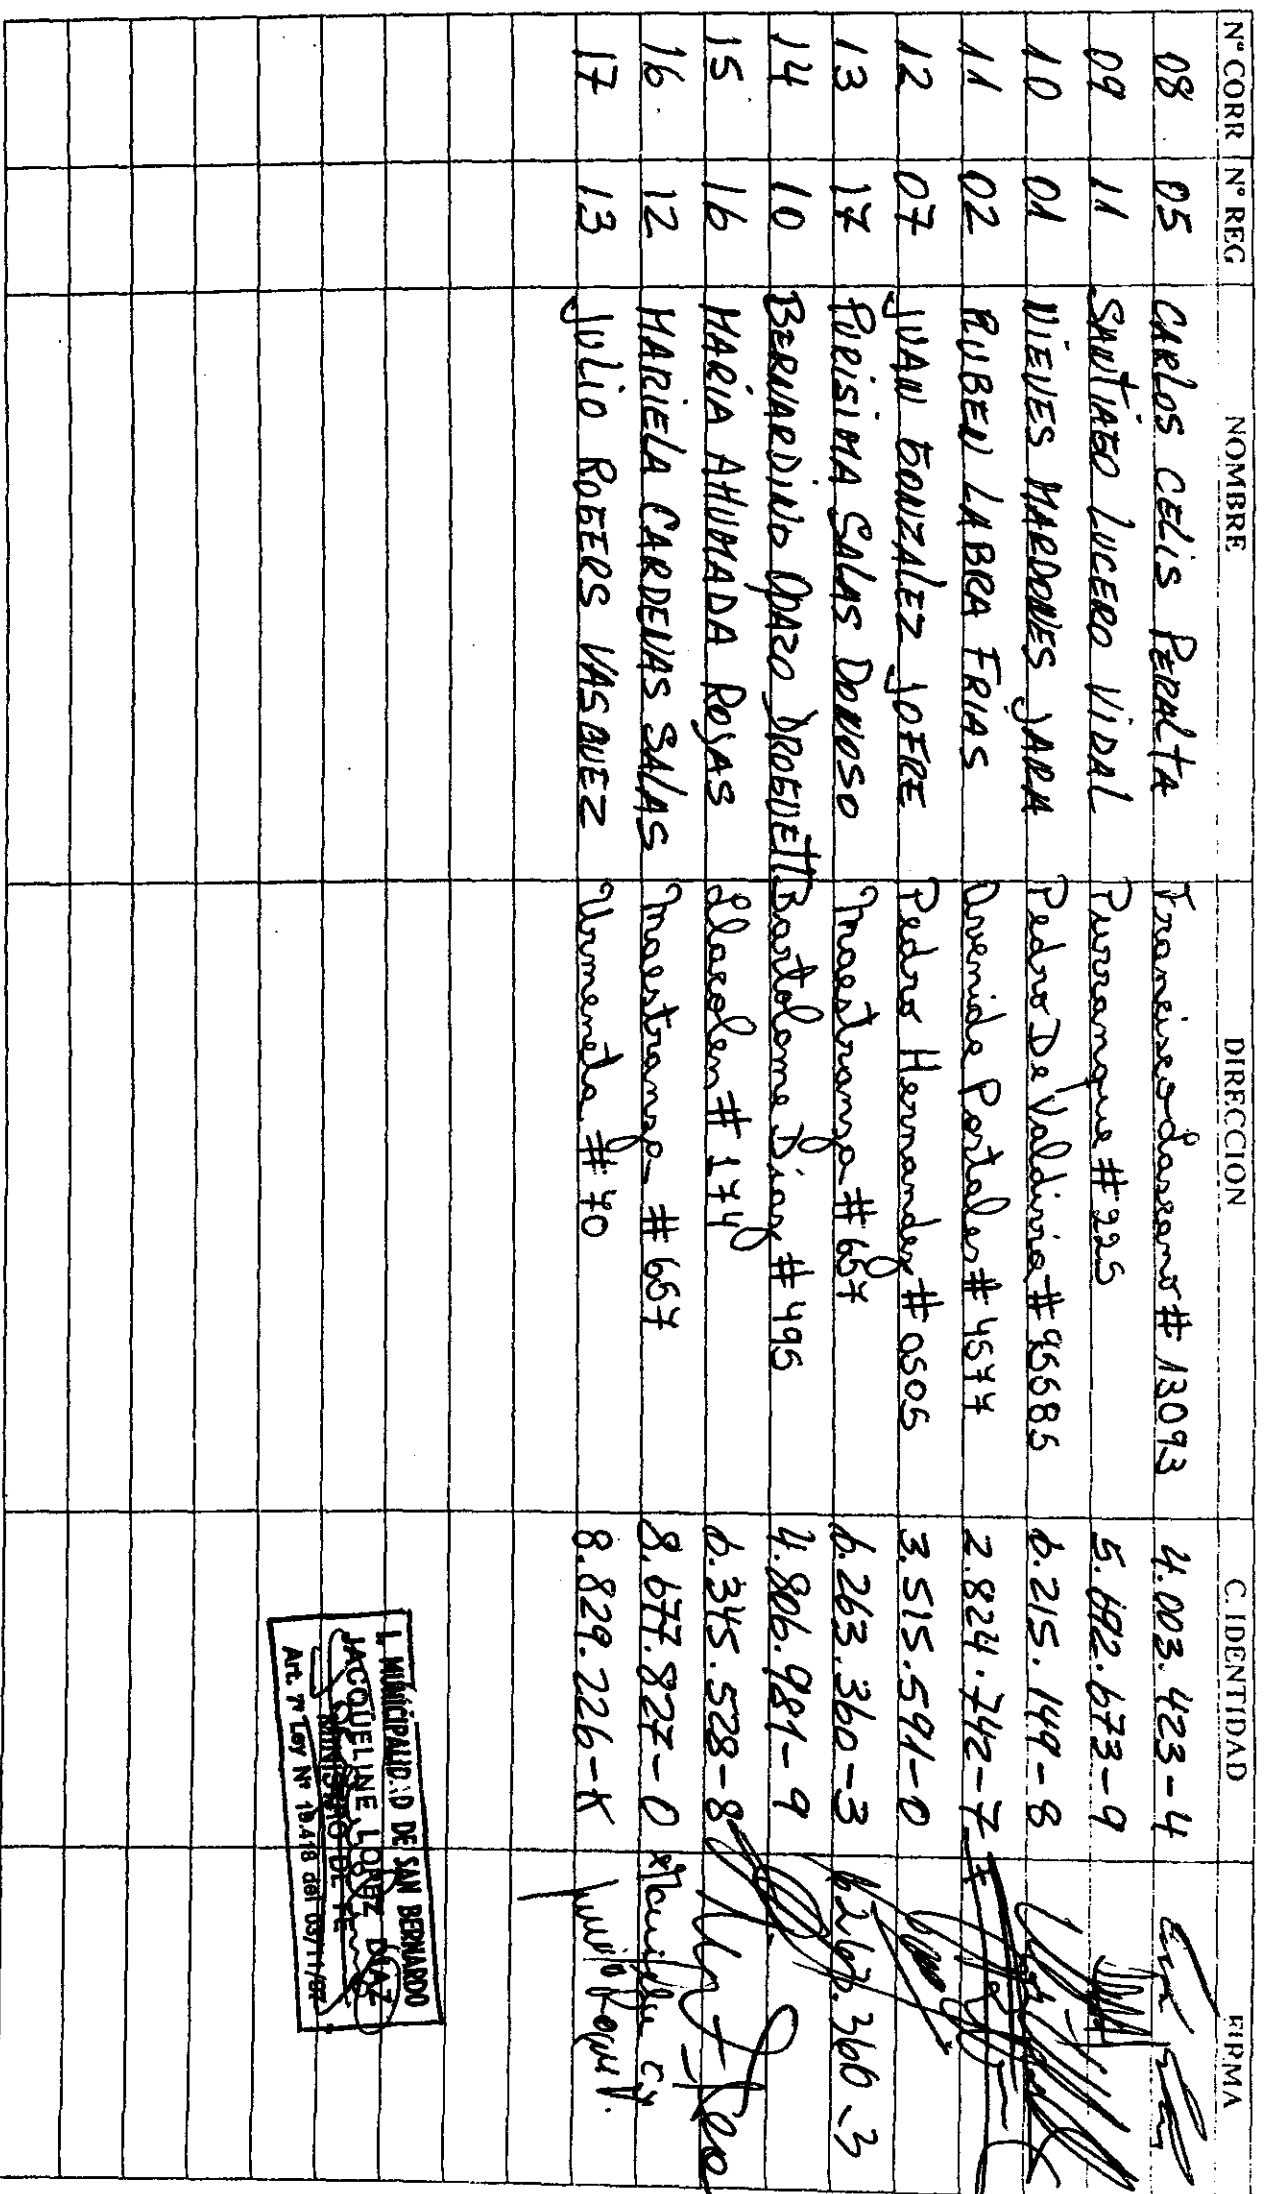 N° CORR N° REG NOMBRE DIRECCION C. IDENTIDAD FIRMA
08 05 CARLOS CELIS PERALTA Francisco Lazcano # 13093 4.003.423-4
09 11 SANTIAGO LUCERO VIDAL Purranque # 225 5.692.673-9
10 01 NIEVES MARDONES JARA Pedro De Valdivia # 95585 6.215.149-8
11 02 RUBEN LABRA FRIAS Avenida Portales # 4577 2.824.742-7
12 07 JUAN GONZALEZ JOFRE Pedro Hernandez # 0505 3.515.591-0
13 17 PURISIMA SALAS DONOSO Maestranza # 657 6.263.360-3 6263.360-3
14 10 BERNARDINO OPAZO DROGUETT Bartolome Diaz # 495 4.806.981-9
15 16 MARIA AHUMADA ROJAS Llacolen # 174 6.345.528-8
16 12 MARIELA CARDENAS SALAS Maestranza # 657 8.677.827-0 Mariela C.
17 13 JULIO ROGERS VASQUEZ Urmeneta # 70 8.829.226-K Julio Roger V.
I. MUNICIPALIDAD DE SAN BERNARDO
JACQUELINE LOPEZ DIAZ
MINISTRO DE FE
Art. 7° Ley N° 19.418 del 03/11/97